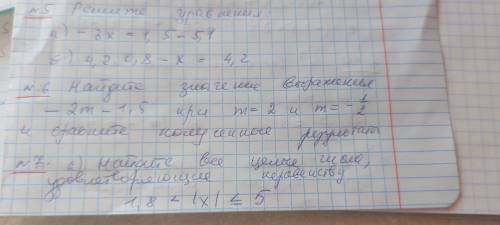 №5 Решите уравнения
а) -3x = 1,5 - 5,1
б) 4,2 · 0,8 - x = 4,2
№6 Найдите значение выражения
- 2m - 1,5 при m = 2 и m = - 1/2
и сравните полученное результат
№7. а) Найдите все целые числа,
удовлетворяющие неравенству
1,8 < |x| ≤ 5